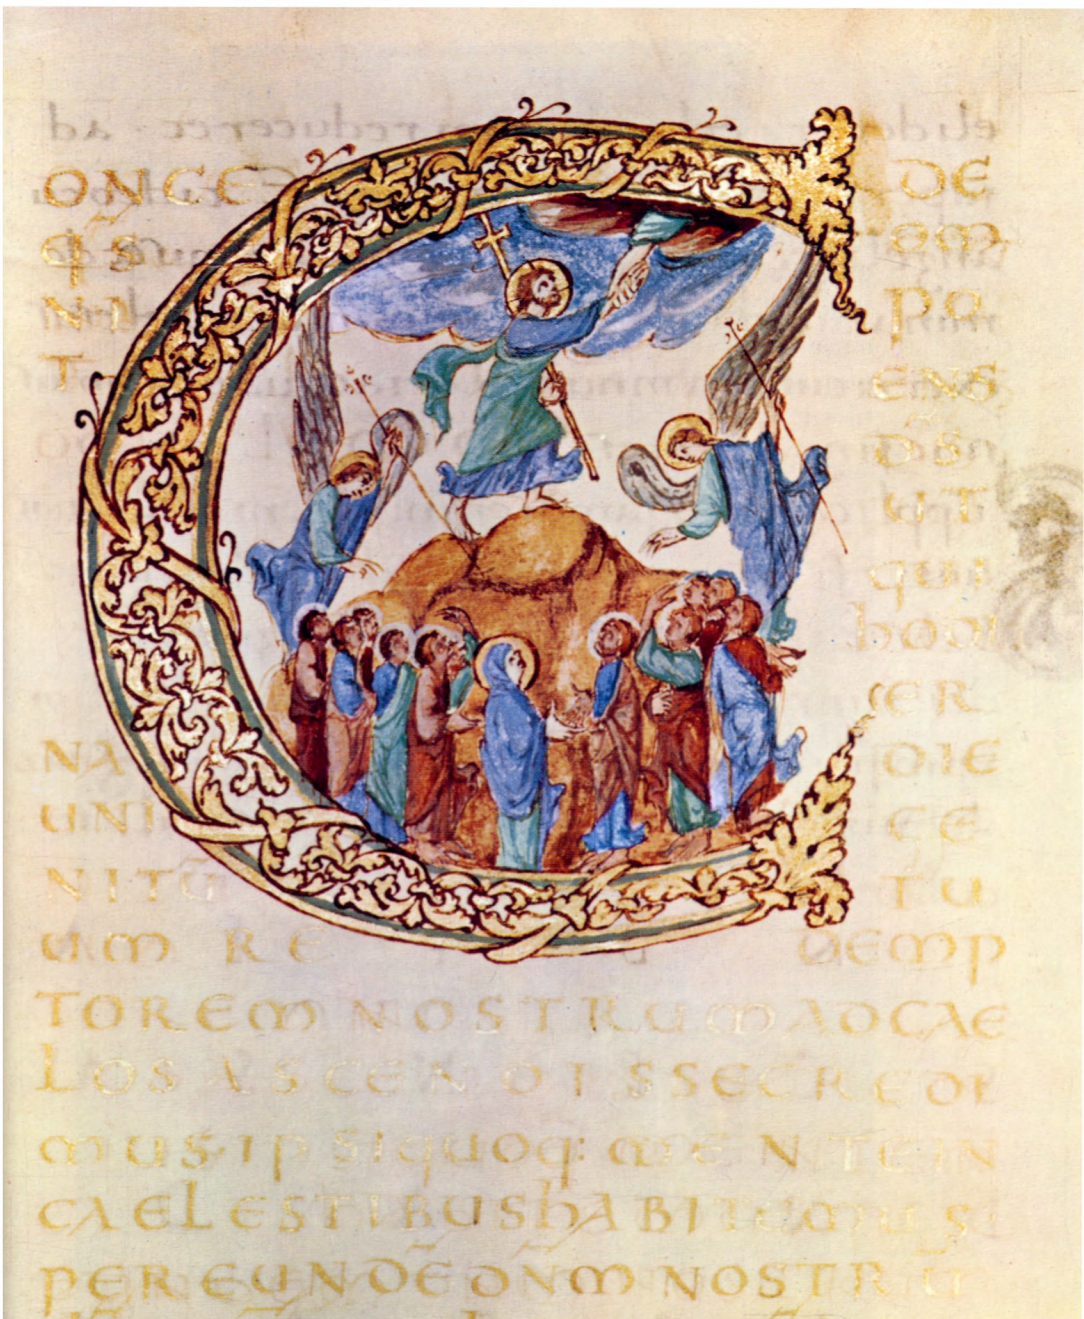 CONCE DE
QS OM
NI PO
T ENS
D̄S
UT
QUI
hODI
ER
NA DIE
UNI GE
NITŪ TU
UM RE DEMP
TOREM NOSTRUM AD CAE
LOS ASCENDISSE CREDI
MUS IPSI QUOQ: MENTE IN
CAELESTIBUS hABITEMUS
PER EUNDĒ DN̄M NOSTRŪ